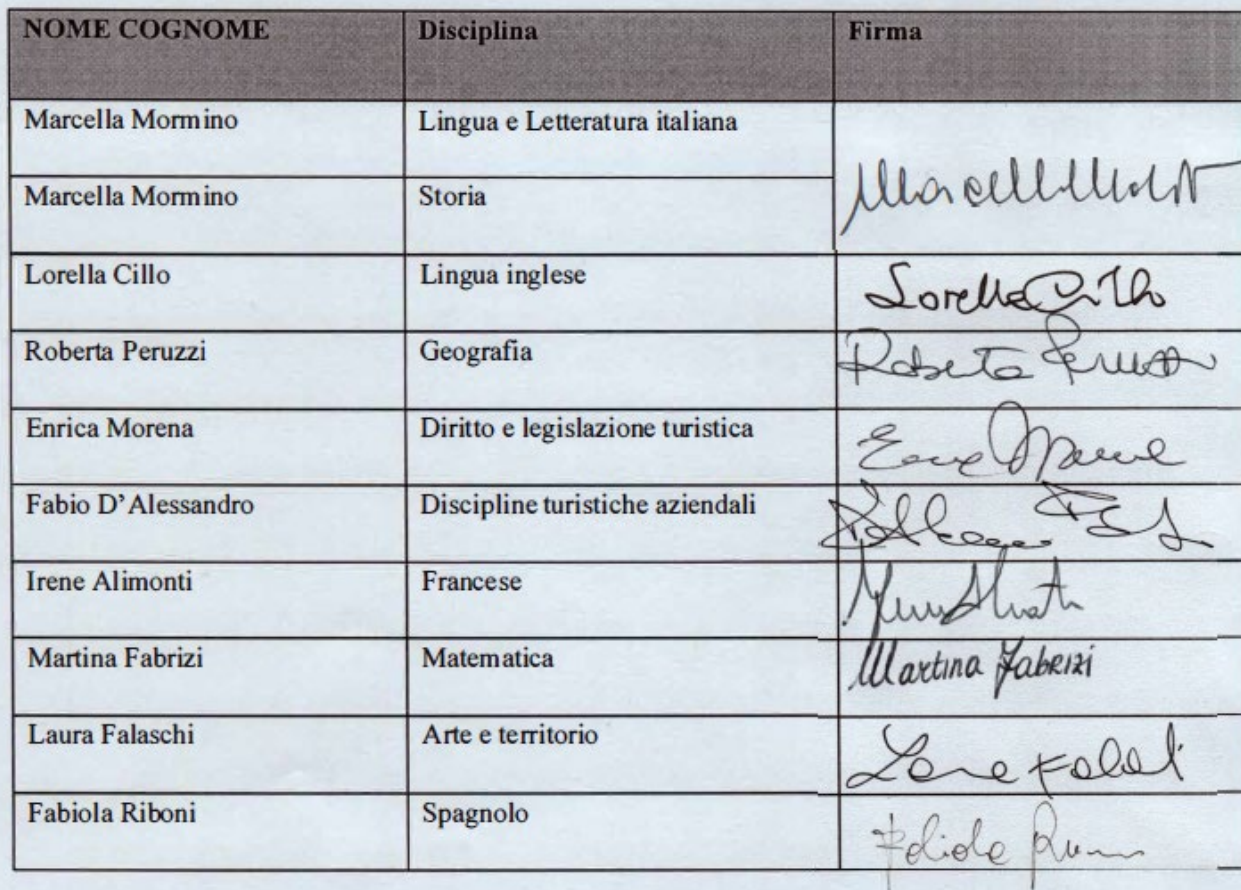 NOME COGNOME Disciplina Firma
Marcella Mormino Lingua e Letteratura italiana
Marcella Mormino Storia
Lorella Cillo Lingua inglese Lorella Cillo
Roberta Peruzzi Geografia Roberta Peruzzi
Enrica Morena Diritto e legislazione turistica
Fabio D'Alessandro Discipline turistiche aziendali
Irene Alimonti Francese
Martina Fabrizi Matematica Martina Fabrizi
Laura Falaschi Arte e territorio
Fabiola Riboni Spagnolo